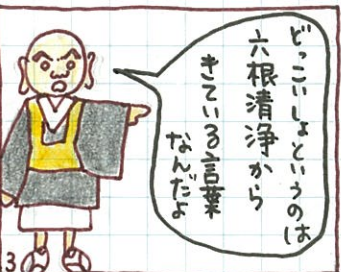 どっこいしょというのは
六根清浄から
きている言葉
なんだよ
3